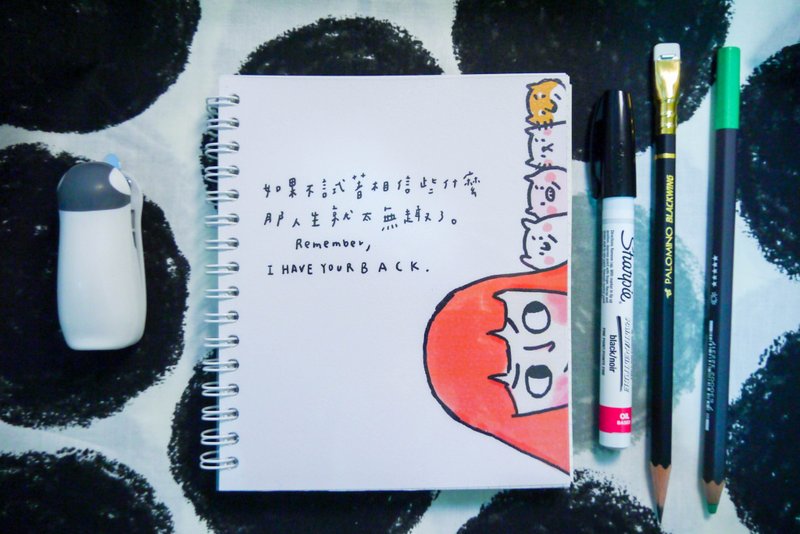 如果不試著相信些什麼
那人生就太無趣了。
Remember,
I HAVE YOUR BACK.
Sharpie
black/noir
OIL
PALOMINO BLACKWING